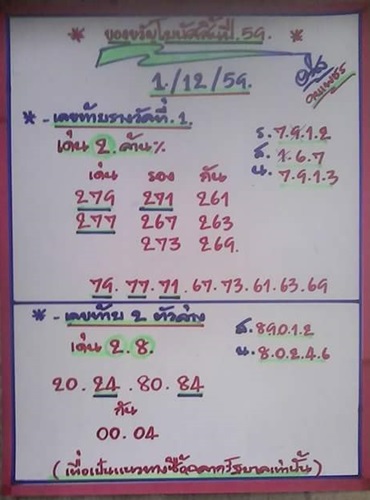 * ของขวัญโบนัสสิ้นปี 59. *
1./12/59.
* - เลขท้ายรางวัลที่ 1.
เด่น 2. ล้าน%
ร. 7.9.1.2
ส. 1.6.7
น. 7.9.1.3
เด่น รอง กัน
279 271 261
277 267 263
273 269.
79. 77. 71. 67. 73. 61. 63. 69
* - เลขท้าย 2 ตัวล่าง
เด่น 2. 8.
ส. 8.9.0.1.2
น. 8.0.2.4.6
20. 24. 80. 84
กัน
00. 04
(เพื่อเป็นแนวทางซื้อฉลากรัฐบาลเท่านั้น)